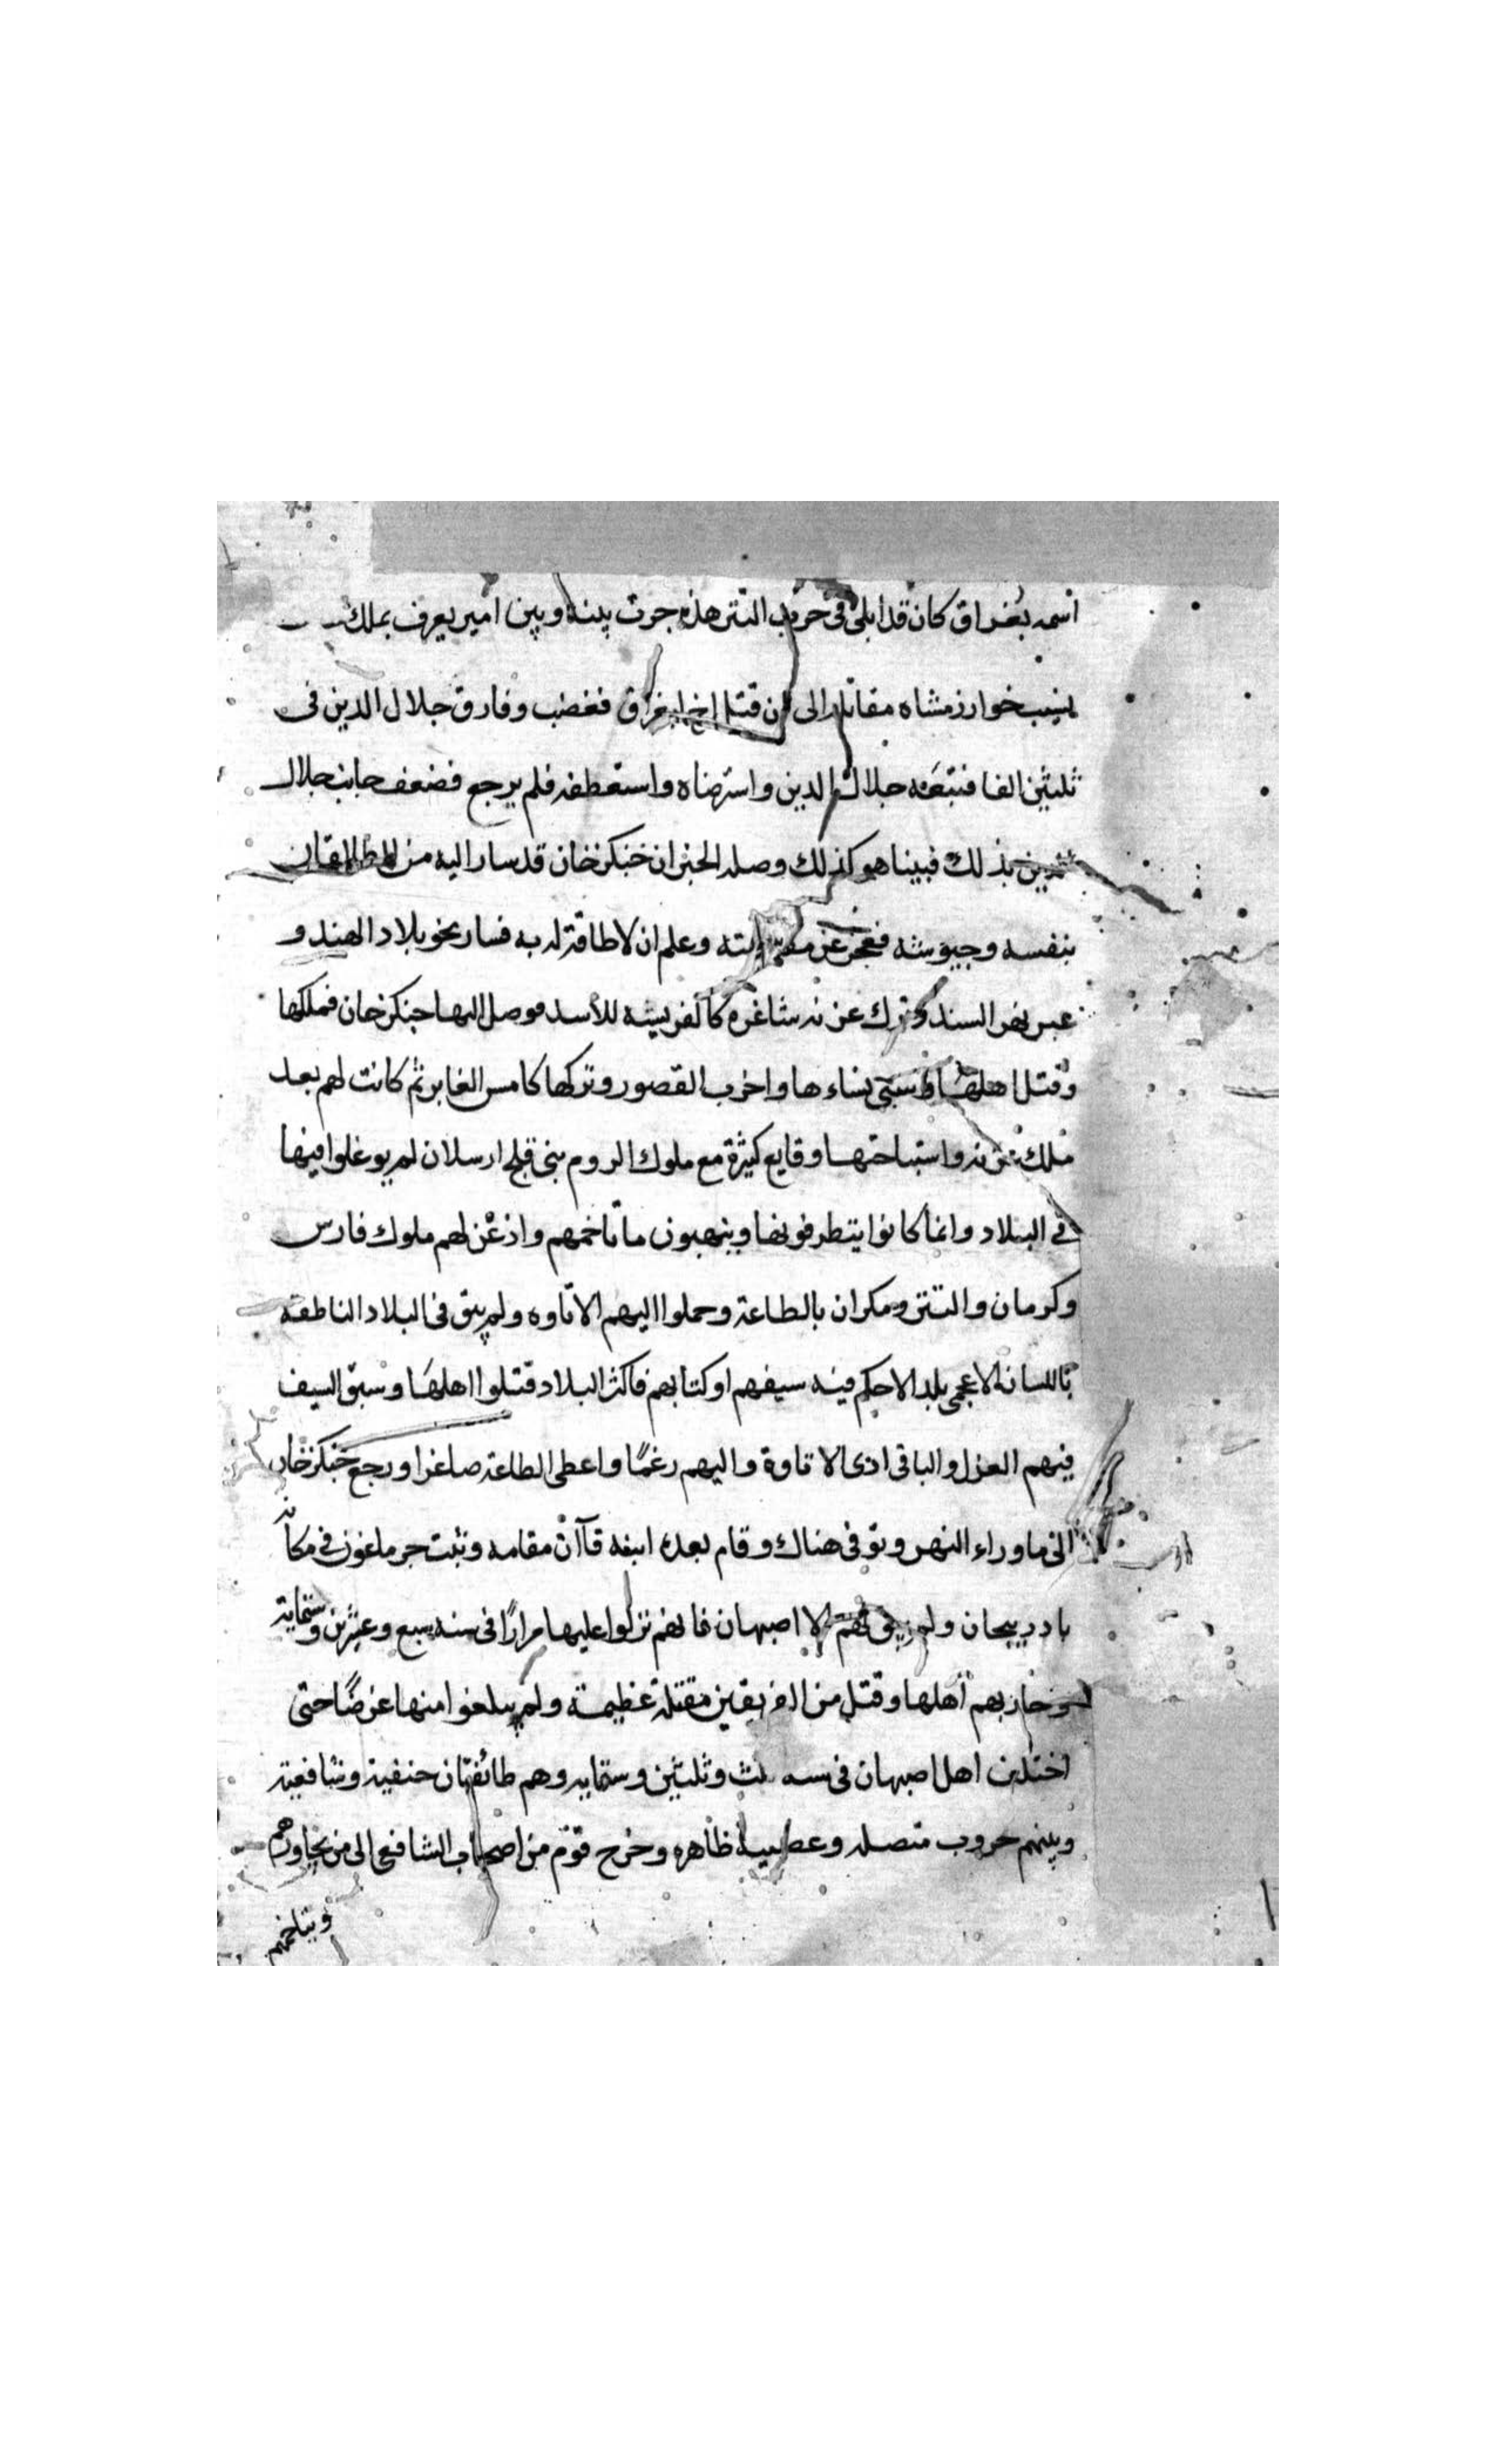 اسمه بغراق كان قد ابلى فى حرب التتر هذه جرت بينه وبين امير يعرف بملك
نسيب خوارزمشاه مقاتله الى ان قتل اخ لبغراق فغضب وفارق جلال الدين فى
ثلثين الفا فتبعه جلال الدين واسترضاه واستعطفه فلم يرجع فضعف جانب جلال
الدين بذلك فبينا هو كذلك وصله الخبر ان جنكزخان قد سار اليه من الطالقان
بنفسه وجيوشه فعجز عن مقاومته وعلم ان لا طاقة له به فسار نحو بلاد الهند و
عبر نهر السند وترك غزنه شاغره كالفريسه للاسد فوصل اليها جنكزخان فملكها
وقتل اهلها وسبى نساءها واخرب القصور وتركها كامس الغابر ثم كانت لهم بعد
ملك غزنه واستباحتها وقايع كثيرة مع ملوك الروم بنى قلج ارسلان لم يوغلوا فيها
فى البلاد وانما كانوا يتطرفونها وينهبون ما تاخمهم واذعن لهم ملوك فارس
وكرمان والتتز ومكران بالطاعة وحملوا اليهم الاتاوه ولم يبق فى البلاد الناطقه
باللسان الاعجمى بلد الا حكم فيه سيفهم او كتابهم فاكثر البلاد قتلوا اهلها وسبق السيف
فيهم العزل والباقى ادى الاتاوة واليهم رغمًا واعطى الطاعة صاغرا ورجع جنكزخان
الى ماوراء النهر وتوفى هناك وقام بعده ابنه قاآن مقامه وثبت جرماغون فى مكانه
باذربيجان ولم يبق لهم الا اصبهان فانهم نزلوا عليها مرارًا فى سنه سبع وعشرين وستماية
وحاربهم اهلها وقتل من الفريقين مقتلة عظيمة ولم يبلغوا منها غرضًا حتى
اختلف اهل اصبهان فى سنه ثلث وثلثين وستمايه وهم طائفتان حنفية وشافعية
وبينهم حروب متصله وعصبية ظاهره وخرج قوم من اصحاب الشافعى الى من يجاورهم
ويتاخمهم